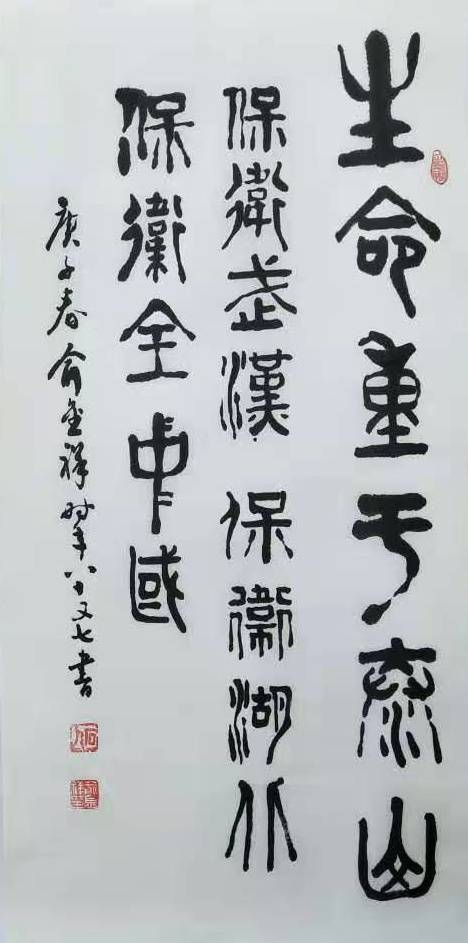 生命重于泰山
保衛武漢 保衛湖北
保衛全中國
庚子春俞金祥时年八十又七書